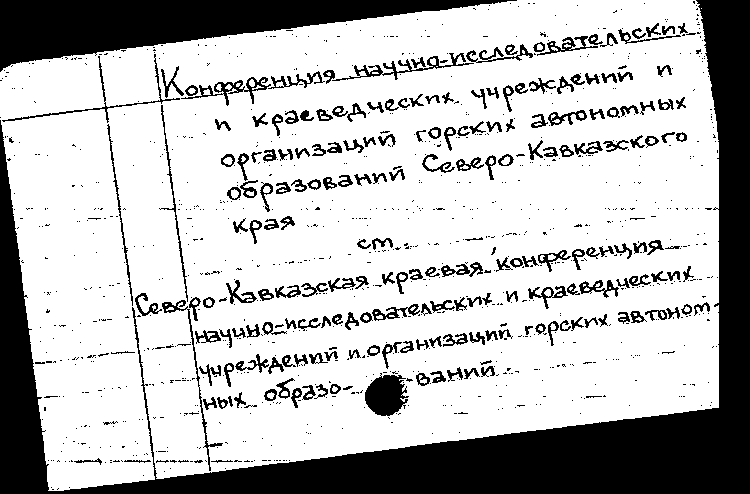 Конференция научно-исследовательских
и краеведческих учреждений и
организаций горских автономных
образований Северо-Кавказского
края
см.
Северо-Кавказская краевая конференция
научно-исследовательских и краеведческих
учреждений и организаций горских автоном-
ных образо- ваний.